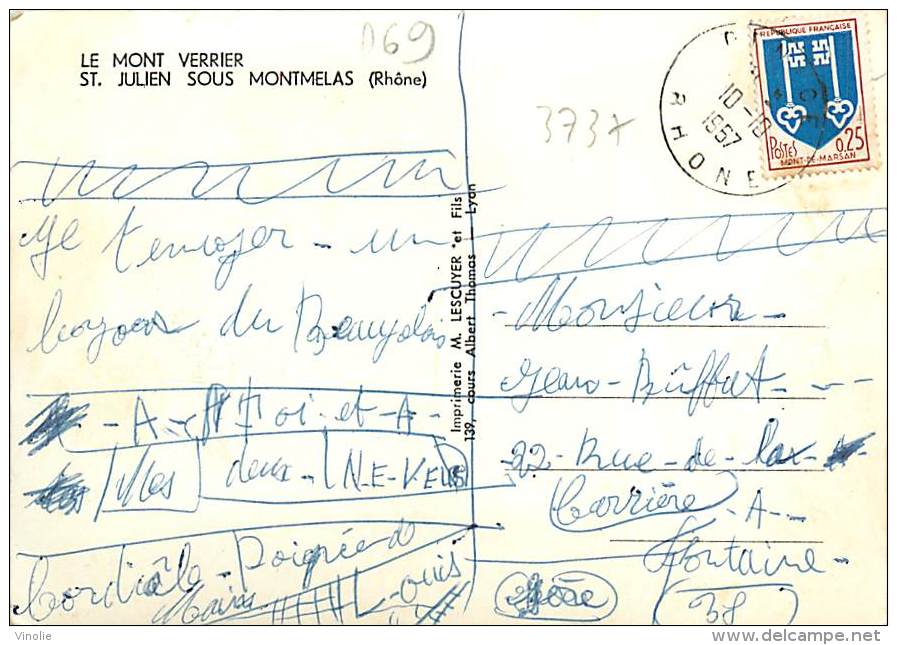 D69
LE MONT VERRIER
ST. JULIEN SOUS MONTMELAS (Rhône)
3737
RHONE
10-10
1967
REPUBLIQUE FRANÇAISE
POSTES 0.25
MONT-DE-MARSAN
Je t'envoyer - un
du Beaujolais
- A - Toi - et - A -
Mes deux - N-E-V-EUS
Cordiale - Poignée d
Mains Louis
Imprimerie M. LESCUYER et Fils
139, cours Albert Thomas - Lyon
- Monsieur -
Jean - Buffat - - -
22 - Rue - de - la -
Carrière - A - -
Fontaine -
Isère (38)
Vinolie
www.delcampe.net